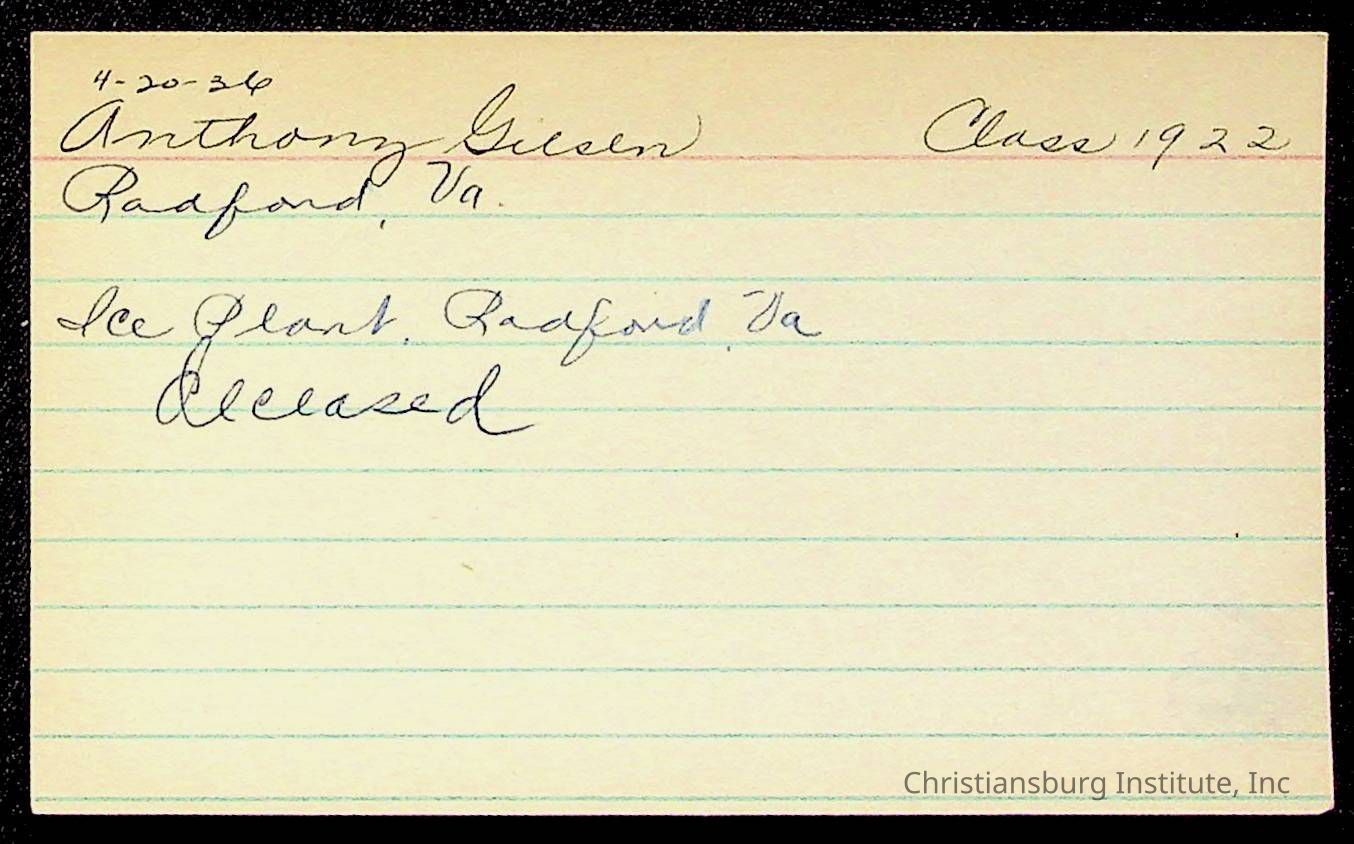 4-20-36
Anthony Class 1922
Radford, Va.
Ice Plant, Radford, Va
Deceased
Christiansburg Institute, Inc